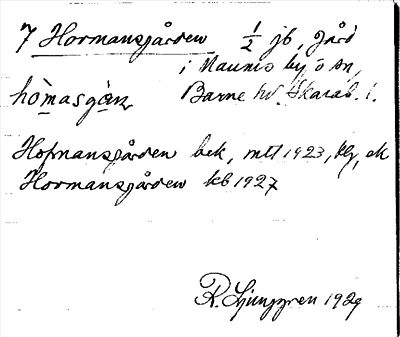 7 Hormansgården 1/2 jb, gård
i Naums by o sn,
hòmasgạ̊n Barne hd. Skarab. l.
Hofmansgården bek, mtl 1923, kg, ek
Hormansgården kb 1927
R. Ljunggren 1929